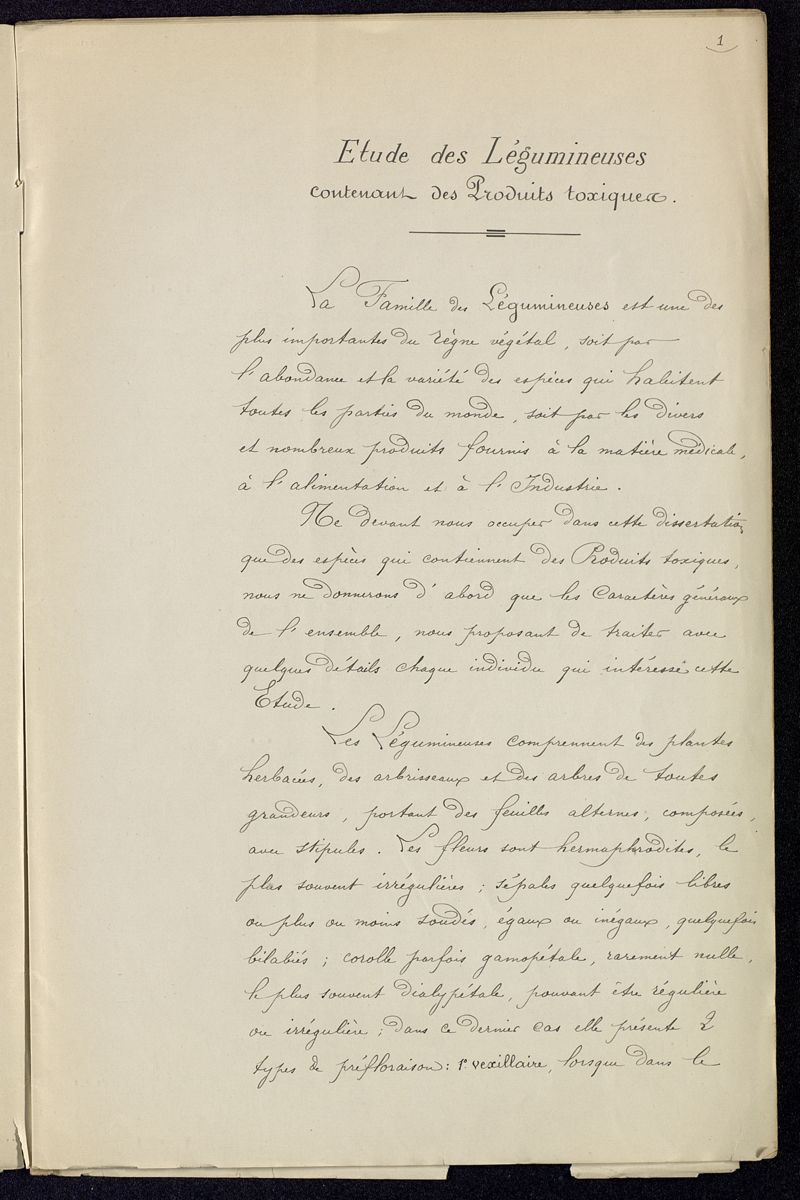 1
Etude des Légumineuses
contenant des Produits toxiques.
La Famille des Légumineuses est une des
plus importantes du règne végétal, soit par
l'abondance et la variété des espèces qui habitent
toutes les parties du monde, soit par les divers
et nombreux produits fournis à la matière médicale,
à l'alimentation et à l'Industrie.
Ne devant nous occuper dans cette dissertation
que des espèces qui contiennent des Produits toxiques,
nous ne donnerons d'abord que les Caractères généraux
de l'ensemble, nous proposant de traiter avec
quelques détails chaque individu qui intéresse cette
Etude.
Les Légumineuses comprennent des plantes
herbacées, des arbrisseaux et des arbres de toutes
grandeurs, portant des feuilles alternes, composées,
avec stipules. Les fleurs sont hermaphrodites, le
plus souvent irrégulières; sépales quelquefois libres
ou plus ou moins soudés, égaux ou inégaux, quelquefois
bilabiés; corolle parfois gamopétale, rarement nulle,
le plus souvent dialypétale, pouvant être régulière
ou irrégulière; dans ce dernier cas elle présente 2
types de préfloraison: 1º vexillaire, lorsque dans le